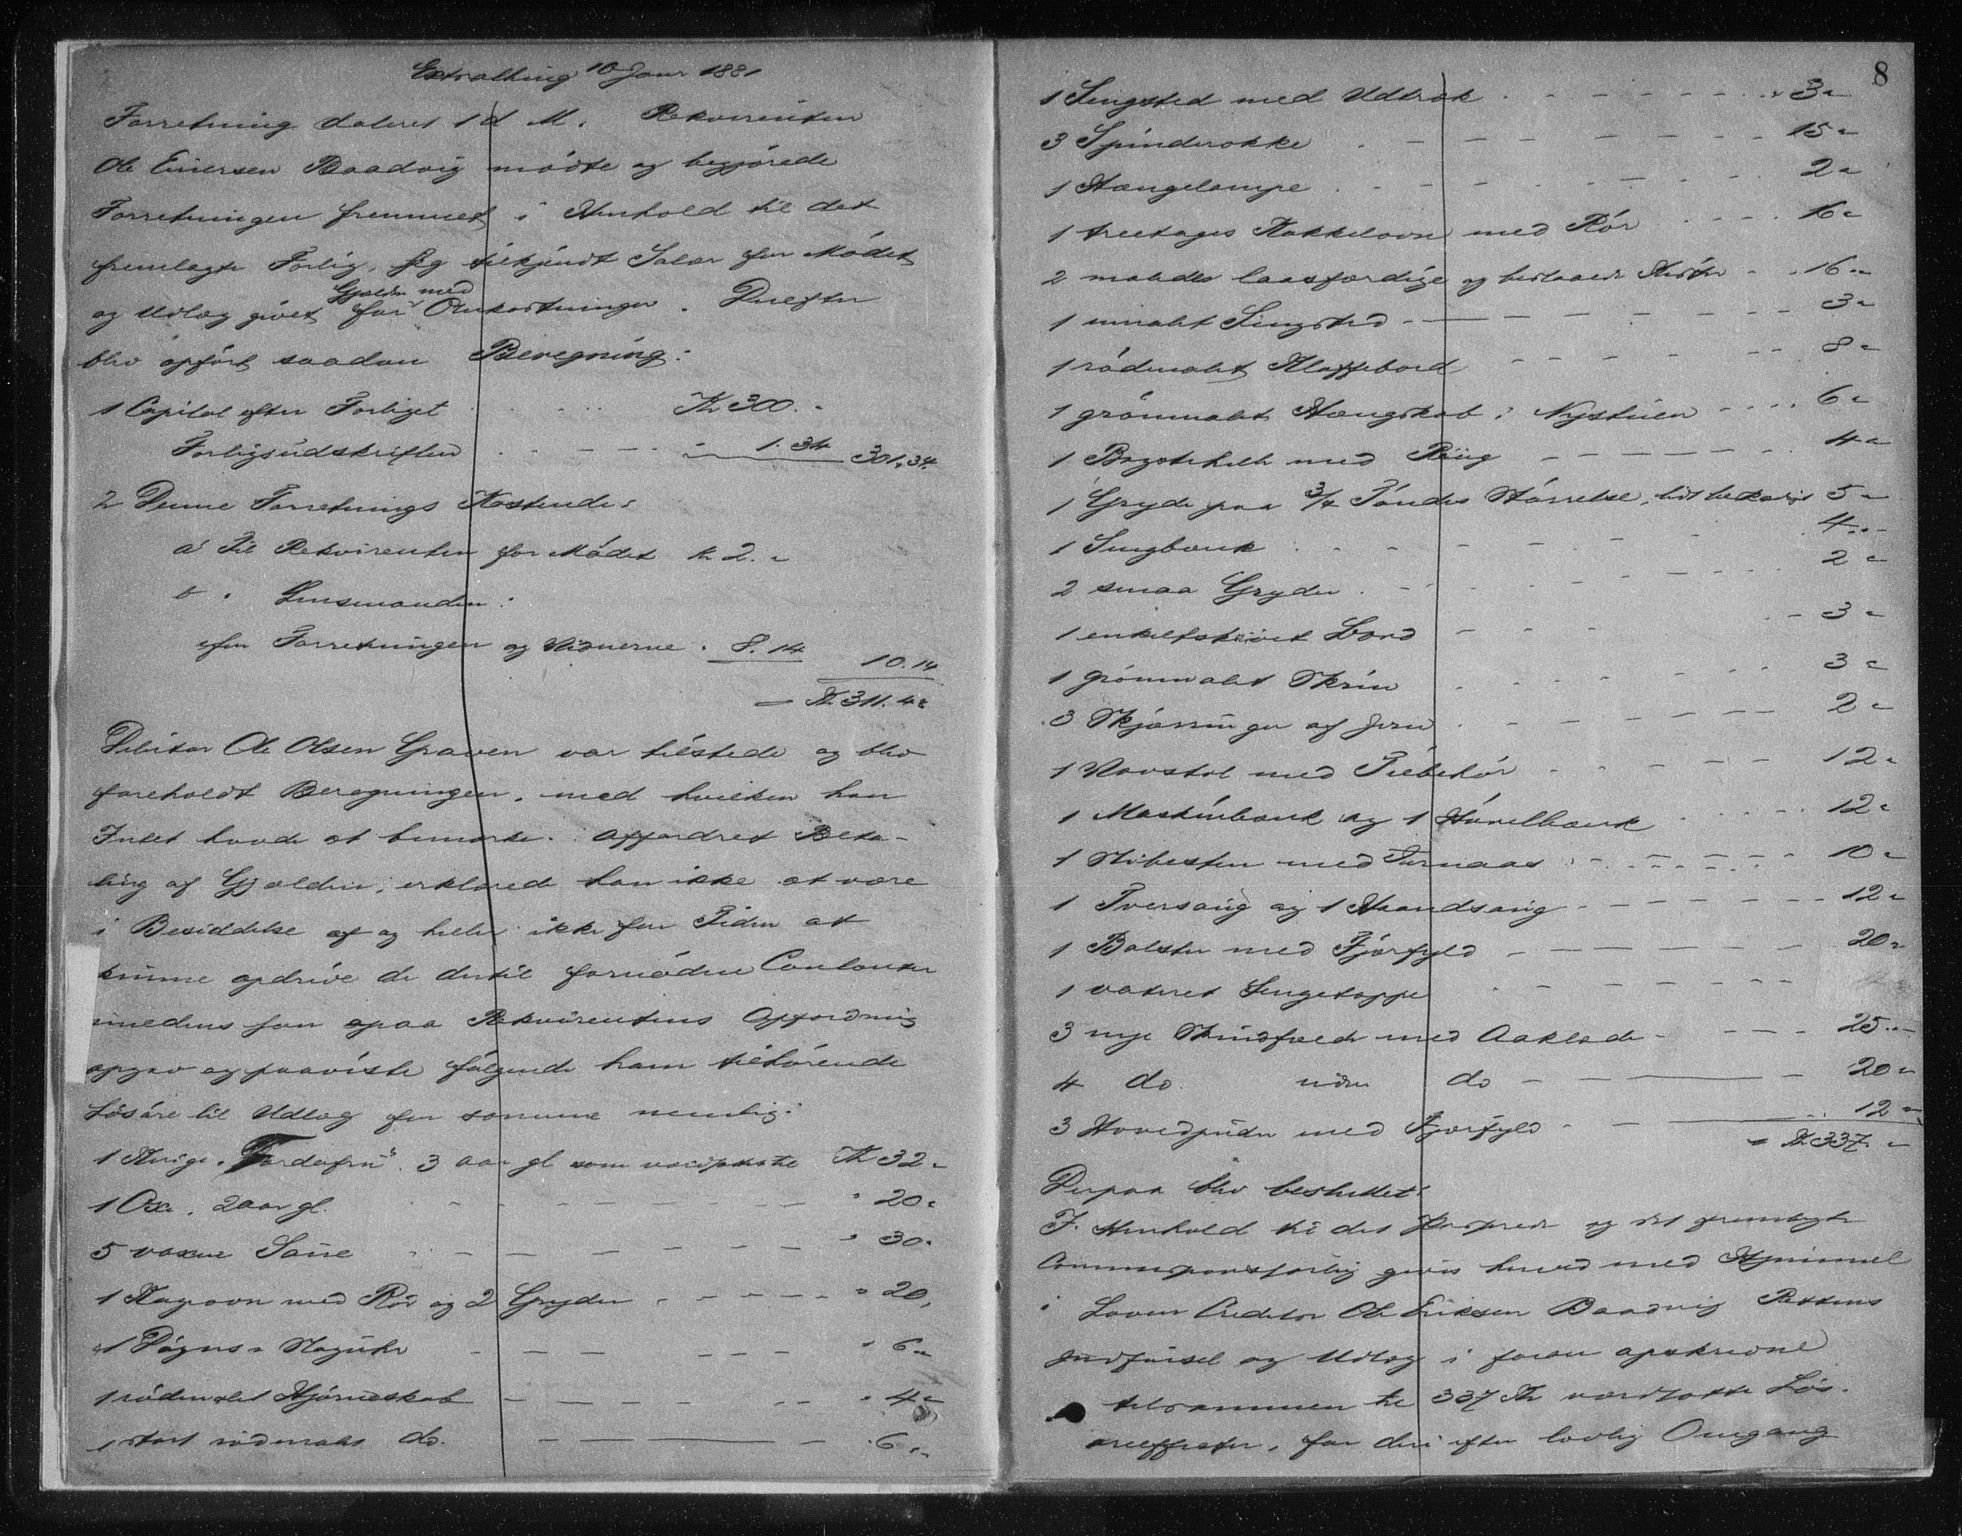 Extrathing 10 Janr 1881
Forretning dateret 1 d M. Rekvirenten
Ole Eriersen Baadvig mødte og begjærede
Forretningen fremmet i Henhold til det
fremlagte Forlig, sig tilkjendt Salær for Mødet
Gjælden med
og Udlæg givet for Omkostninger. Derefter
blev opført saadan Beregning:
1 Capital efter Forliget Kr 300. "
Forligsudskriften " 1.34 301,34.
2 Denne Forretnings Kostende:
a Til Rekvirenten for Mødet Kr 2. "
b " Lensmanden:
for Forretningen og Vidnerne. 8.14 10.14
Kr. 311.48
Debitor Ole Olsen Graven var tilstede og blev
foreholdt Beregningen, med hvilken han
Intet havde at bemærke. Affordret Beta-
ling af Gjælden, erklærede han ikke at være
i Besiddelse af og heller ikke for Tiden at
kunne opdrive de dertil fornødne Contanter
imedens han paa Rekvirentens Opfordring
opgav og paaviste følgende ham tilhørende
Løsøre til Udlæg for samme nemlig:
1 Kvige "Fordafrü" 3 aar gl som Kr 32 "
1 Oxe, 2 aar gl. " 20 "
5 voxne Saue " 30 "
1 Kagovn med Rør og 2 Gryder " 20,
1 Døgns Slaguhr " 6 "
1 rødmalet Hjørneskab " 4 "
1 stort rødmalet do. " 6 "
8
1 Sengsted med Udtræk " 3 "
3 Spinderokke 15 "
1 Hængelampe 2 "
1 treetages Kakkelovn med Rør 16 "
2 malede laasfærdige og beslaaede Kister 16 "
1 umalet Sengsted 3 "
1 rødmalet Klaffebord 8 "
1 grønmalet Hængskab i Nystuen 6 "
1 med Ring 4 "
1 Gryde paa 3/4 Tøndes Størrelse, lidt 5 "
1 Sengbænk 4 "
2 smaa Gryder 2 "
1 enkeltskivet Bord 3 "
1 grønmalet Skrin 3 "
3 Skjæringer af Jern 2 "
1 Vævstol med Tilbehør 12 "
1 Maskinbænk og 1 Høvelbænk 12 "
1 Slibesten med 10 "
1 Tversaug og 1 Haandsaug 12 "
1 Bolster med Fjærfyld 20 "
1 vateret Sengetæppe
3 nye Skindfælde med Aaklæde 25 "
4 do. uden do 20 "
3 Hovedpuder med Fjærfyld 12 "
Kr. 337 "
Derpaa blev besluttet:
I Henhold til det Passerede og det fremlagte
Commissionsforlig gives herved med Hjemmel
i Loven Creditor Ole Eriksen Baadvig Rettens
Indførsel og Udlæg i foran opskrevne
tilsammen til 337 Kr værdsatte Løs-
øreeffecter, for deri efter lovlig Omgang